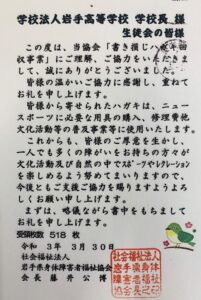 学校法人岩手高等学校 学校長 様
生徒会の皆様
この度は、当協会「書き損じハガキ回
収事業」にご理解、ご協力をいただきま
して、誠にありがとうございました。
皆様の温かいご協力に感謝し、重ねて
お礼を申し上げます。
皆様から寄せられたハガキは、ニュー
スポーツに必要な用具の購入、修理費他
文化活動等の普及事業等に使用いたします。
これからも、皆様のご厚意を生かし、
一人でも多くの障がいをお持ちの方々が
文化活動及び自然の中でスポーツやレクレーション
を楽しめるよう努めてまいりますので、
今後ともご支援ご協力を賜りますようよろし
くお願い申し上げます。
まずは、略儀ながら書中をもちまして
お礼を申し上げます。
受領枚数 518 枚
令和 3年 3月30日
社会福祉法人
岩手県身体障害者福祉協会
会長 藤井公博